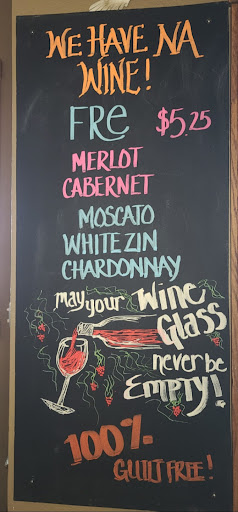 WE HAVE NA
WINE!
FRE $5.25
MERLOT
CABERNET
MOSCATO
WHITE ZIN
CHARDONNAY
may your Wine
Glass
never be
EMPTY!
100%
GUILT FREE!